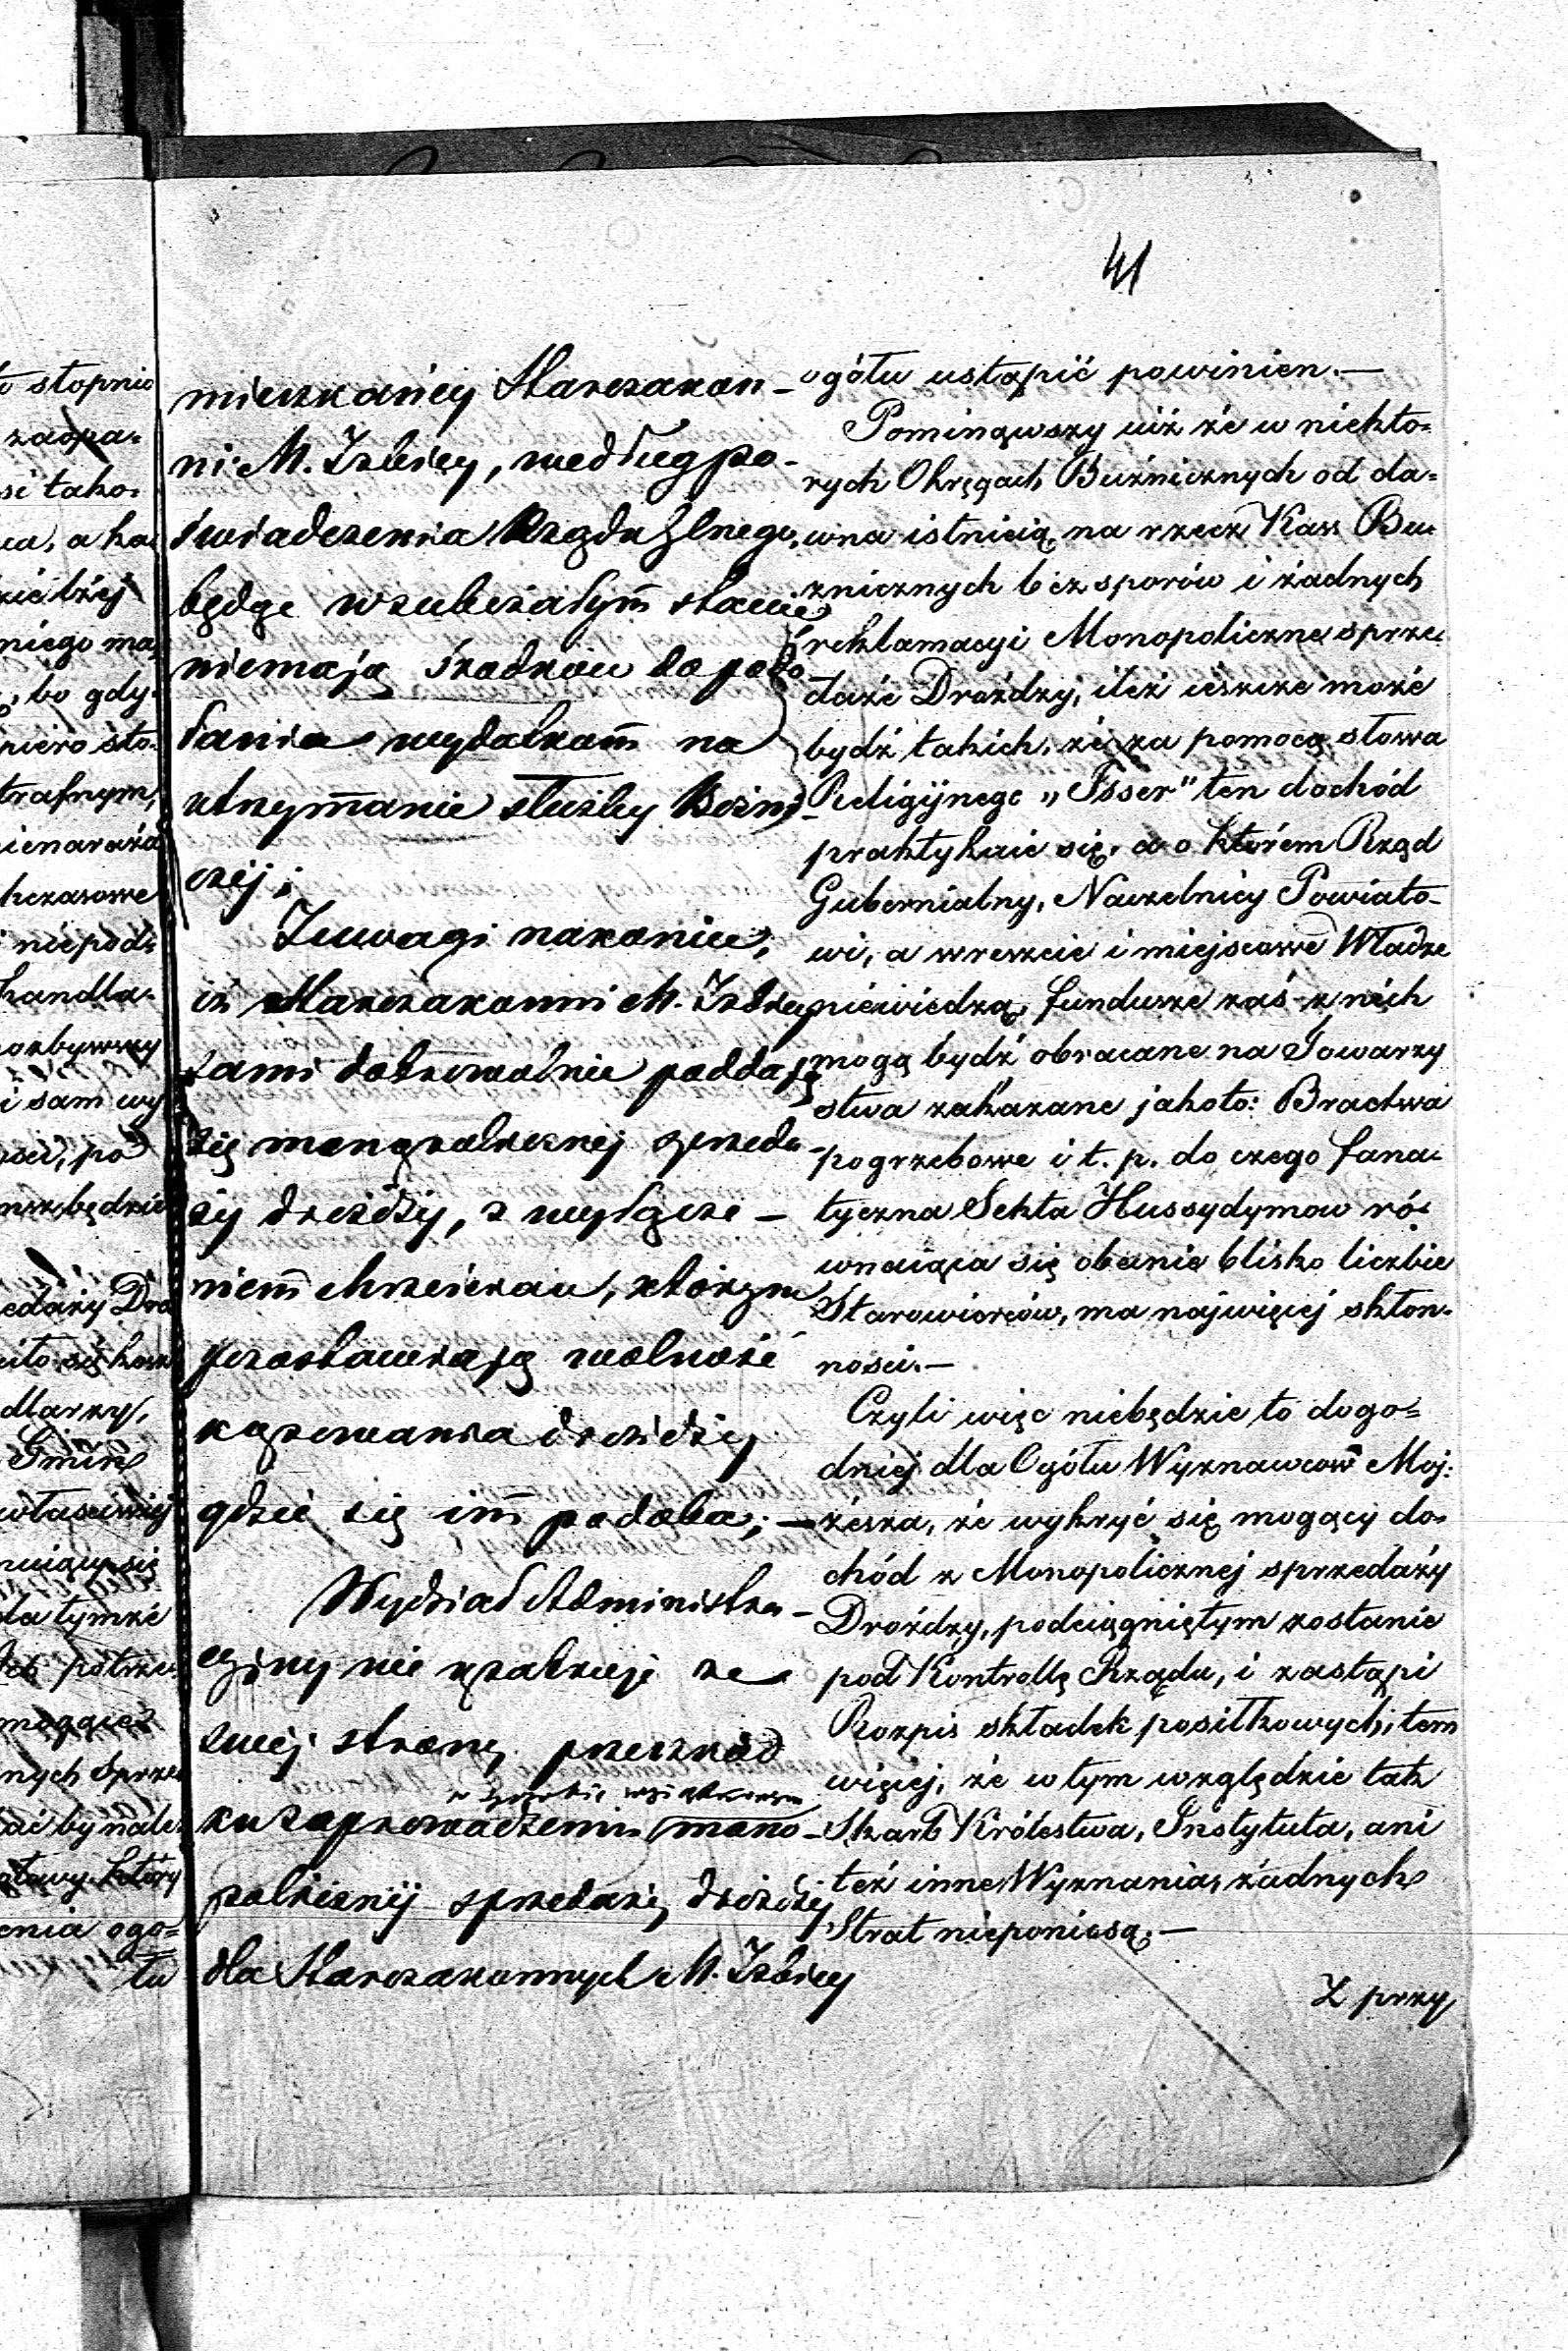 41
mieszkańcy Starozakon-
ni M. Izbicy, według po-
świadczenia Rządu Glnego,
będąc w zubożałym stanie
niemają środków do podo-
łania wydatkom na
utrzymanie służby Bożni-
czej;
Z uwagi nakoniec,
iż Starozakonni M. Izbicy
sami dobrowolnie poddają
się monopolicznej sprzeda-
ży drożdży, z wyłącze-
niem chrześcian, którym
pozostawiają wolność
kupowania drożdży
gdzie się im podoba; —
Wydział Administra-
cyjny nie upatruje ze
swej strony przeszkód
w sposobie wyjątkowym
ku zaprowadzeniu mono-
policznej sprzedaży drożdży
dla Starozakonnych M. Izbicy
ogółu ustąpić powinien.—
Pominąwszy iuż że w niekto=
rych Okręgach Bużnicznych od da=
wna istnieią na rzecz Kass Bu
żnicznych bez sporów i żadnych
reklamacyi Monopoliczne sprze
daże Drożdży, ileż ieszcze może
bydź takich, że za pomocą słowa
Religijnego „Isser" ten dochód
praktykuie się, a o którem Rząd
Gubernialny, Naczelnicy Powiato-
wi, a wreszcie i miejscowe Władze
niewiedzą, fundusze zaś z nich
mogą bydź obracane na Towarzy
stwa zakazane jakoto: Bractwa
pogrzebowe i t. p. do czego fana=
tyczna Sekta Hussydymow ró=
wnaiąca się obecnie blisko liczbie
Starowierców, ma najwięcej skłon-
nosci.—
Czyli więc niebędzie to dogo=
dniej dla Ogółu Wyznawców Moj:
żesza, że wykryć się mogący do=
chód z Monopolicznej sprzedaży
Drożdży, podciągniętym zostanie
pod Kontrollę Rządu, i zastąpi
Rozpis składek posiłkowych, tem
więcej, że w tym względzie tak
Skarb Królestwa, Instytuta, ani
też inne Wyznania, żadnych
Strat nieponiosą.—
Z przy